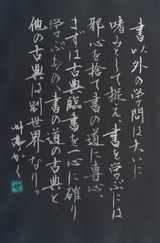 書以外の学問は大いに
嗜みとして捉え、書を学ぶには
邪心を捨て書の道に専心、
まずは古典臨書を心に確り
学ぶあの書の道の古典と
他の古典は別世界なり。
かく